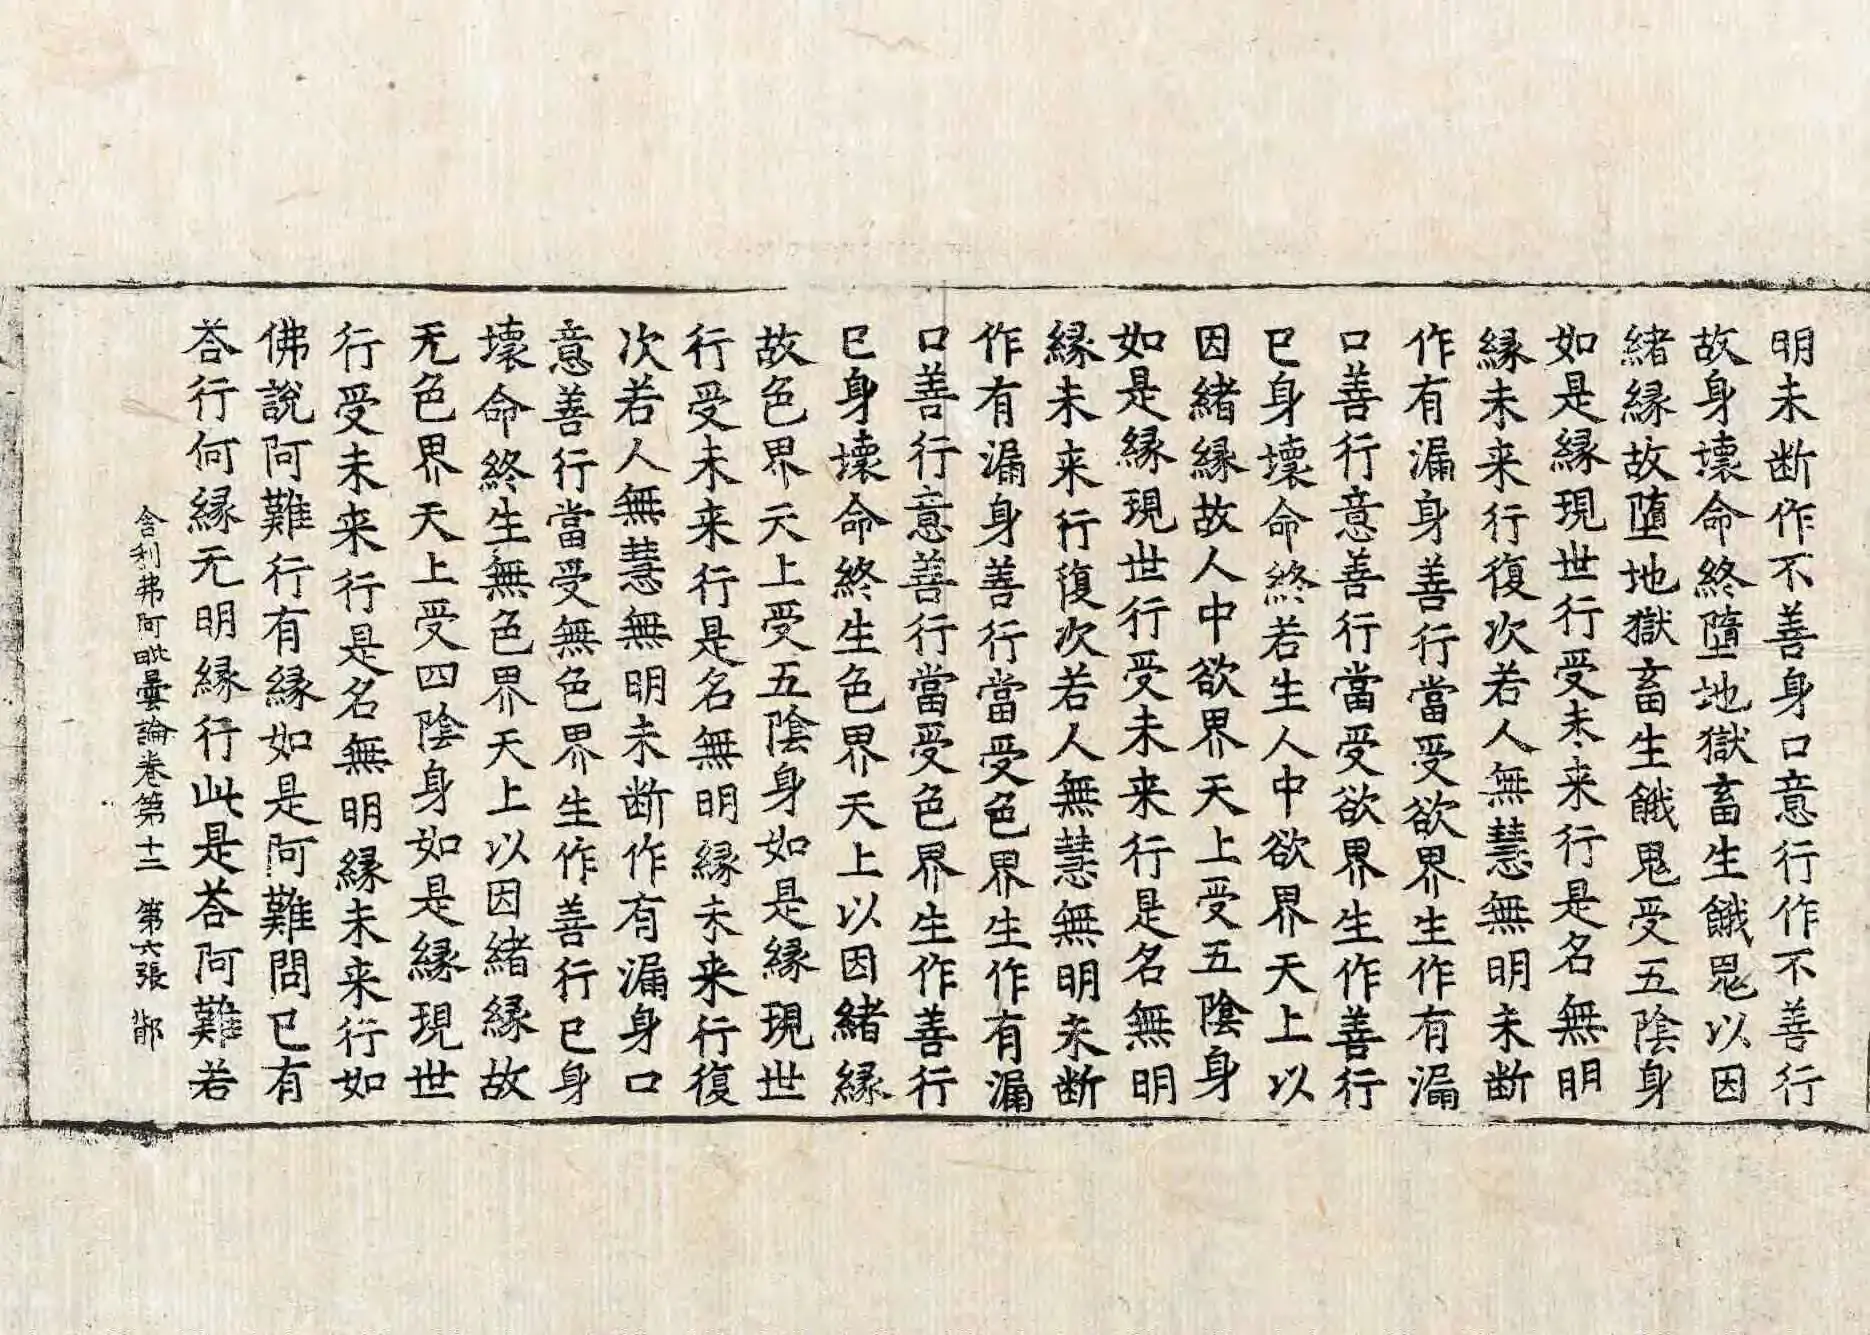 明未断作不善身口意行作不善行
故身壞命終墮地獄畜生餓鬼以因
緒縁故墮地獄畜生餓鬼受五陰身
如是縁現世行受未来行是名無明
縁未来行復次若人無慧無明未断
作有漏身善行當受欲界生作有漏
口善行意善行當受欲界生作善行
已身壞命終若生人中欲界天上以
因緒縁故人中欲界天上受五陰身
如是縁現世行受未来行是名無明
縁未来行復次若人無慧無明未断
作有漏身善行當受色界生作有漏
口善行意善行當受色界生作善行
已身壞命終生色界天上以因緒縁
故色界天上受五陰身如是縁現世
行受未来行是名無明縁未来行復
次若人無慧無明未断作有漏身口
意善行當受無色界生作善行已身
壞命終生無色界天上以因緒縁故
无色界天上受四陰身如是縁現世
行受未来行是名無明縁未来行如
佛說阿難行有縁如是阿難問已有
荅行何縁无明縁行此是荅阿難若
舍利弗阿毗曇論卷第十二 第六張 鄁